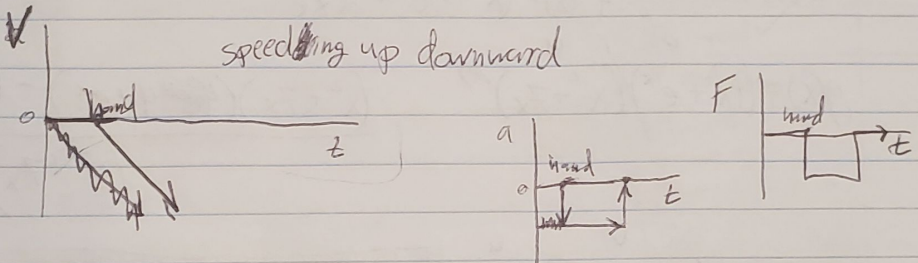 V
speeding up downward
0
hand
t
a
hand
0
t
F
hand
t